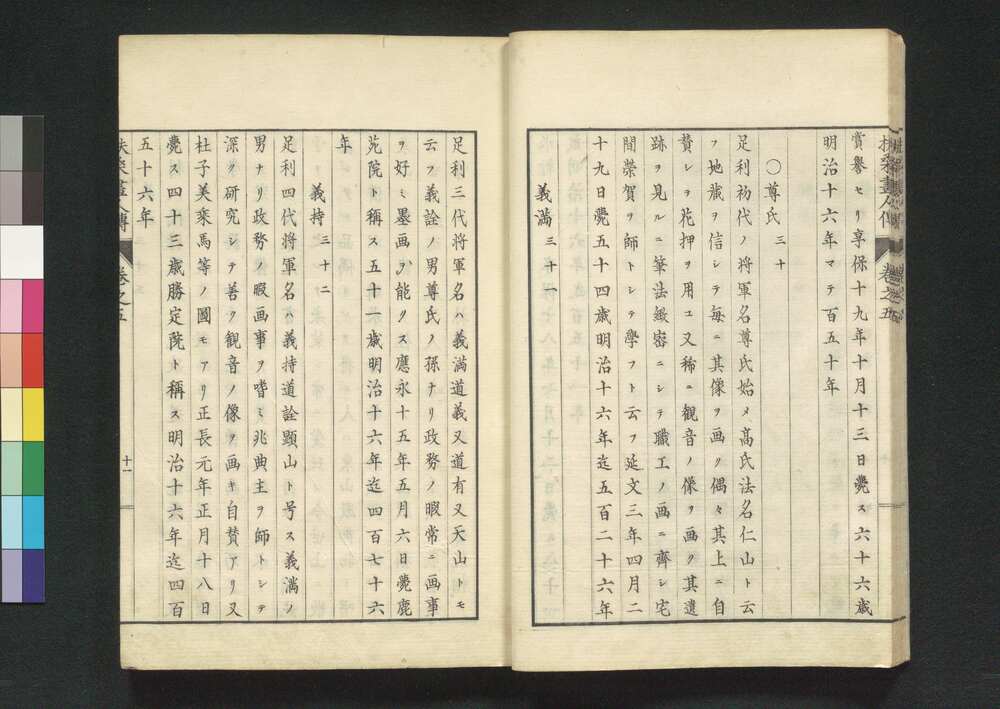 賞譽セリ享保十九年十月十三日薨ス六十六歳
明治十六年マテ百五十年
○尊氏 三十
足利初代ノ将軍名尊氏始メ高氏法名仁山ト云
フ地蔵ヲ信シテ毎ニ其像ヲ画ク偶々其上ニ自
賛シテ花押ヲ用ユ又稀ニ観音ノ像ヲ画ク其遺
跡ヲ見ルニ筆法緻密ニシテ職工ノ画ニ齊シ宅
間榮賀ヲ師トシテ學フト云フ延文三年四月二
十九日薨五十四歳明治十六年迄五百二十六年
義滿 三十一
扶桑畫人傳 卷之五
足利三代将軍名ハ義滿道義又道有又天山トモ
云フ義詮ノ男尊氏ノ孫ナリ政務ノ暇常ニ画事
ヲ好ミ墨画ヲ能クス應永十五年五月六日薨鹿
苑院ト稱ス五十一歳明治十六年迄四百七十六
年
義持 三十二
足利四代将軍名ハ義持道詮顕山ト号ス義満ノ
男ナリ政務ノ暇画事ヲ嗜ミ兆典主ヲ師トシテ
深ク研究シテ善ク観音ノ像ヲ画キ自賛アリ又
杜子美乘馬等ノ圖モアリ正長元年正月十八日
薨ス四十三歳勝定院ト稱ス明治十六年迄四百
五十六年
扶桑畫人傳 卷之五 十一